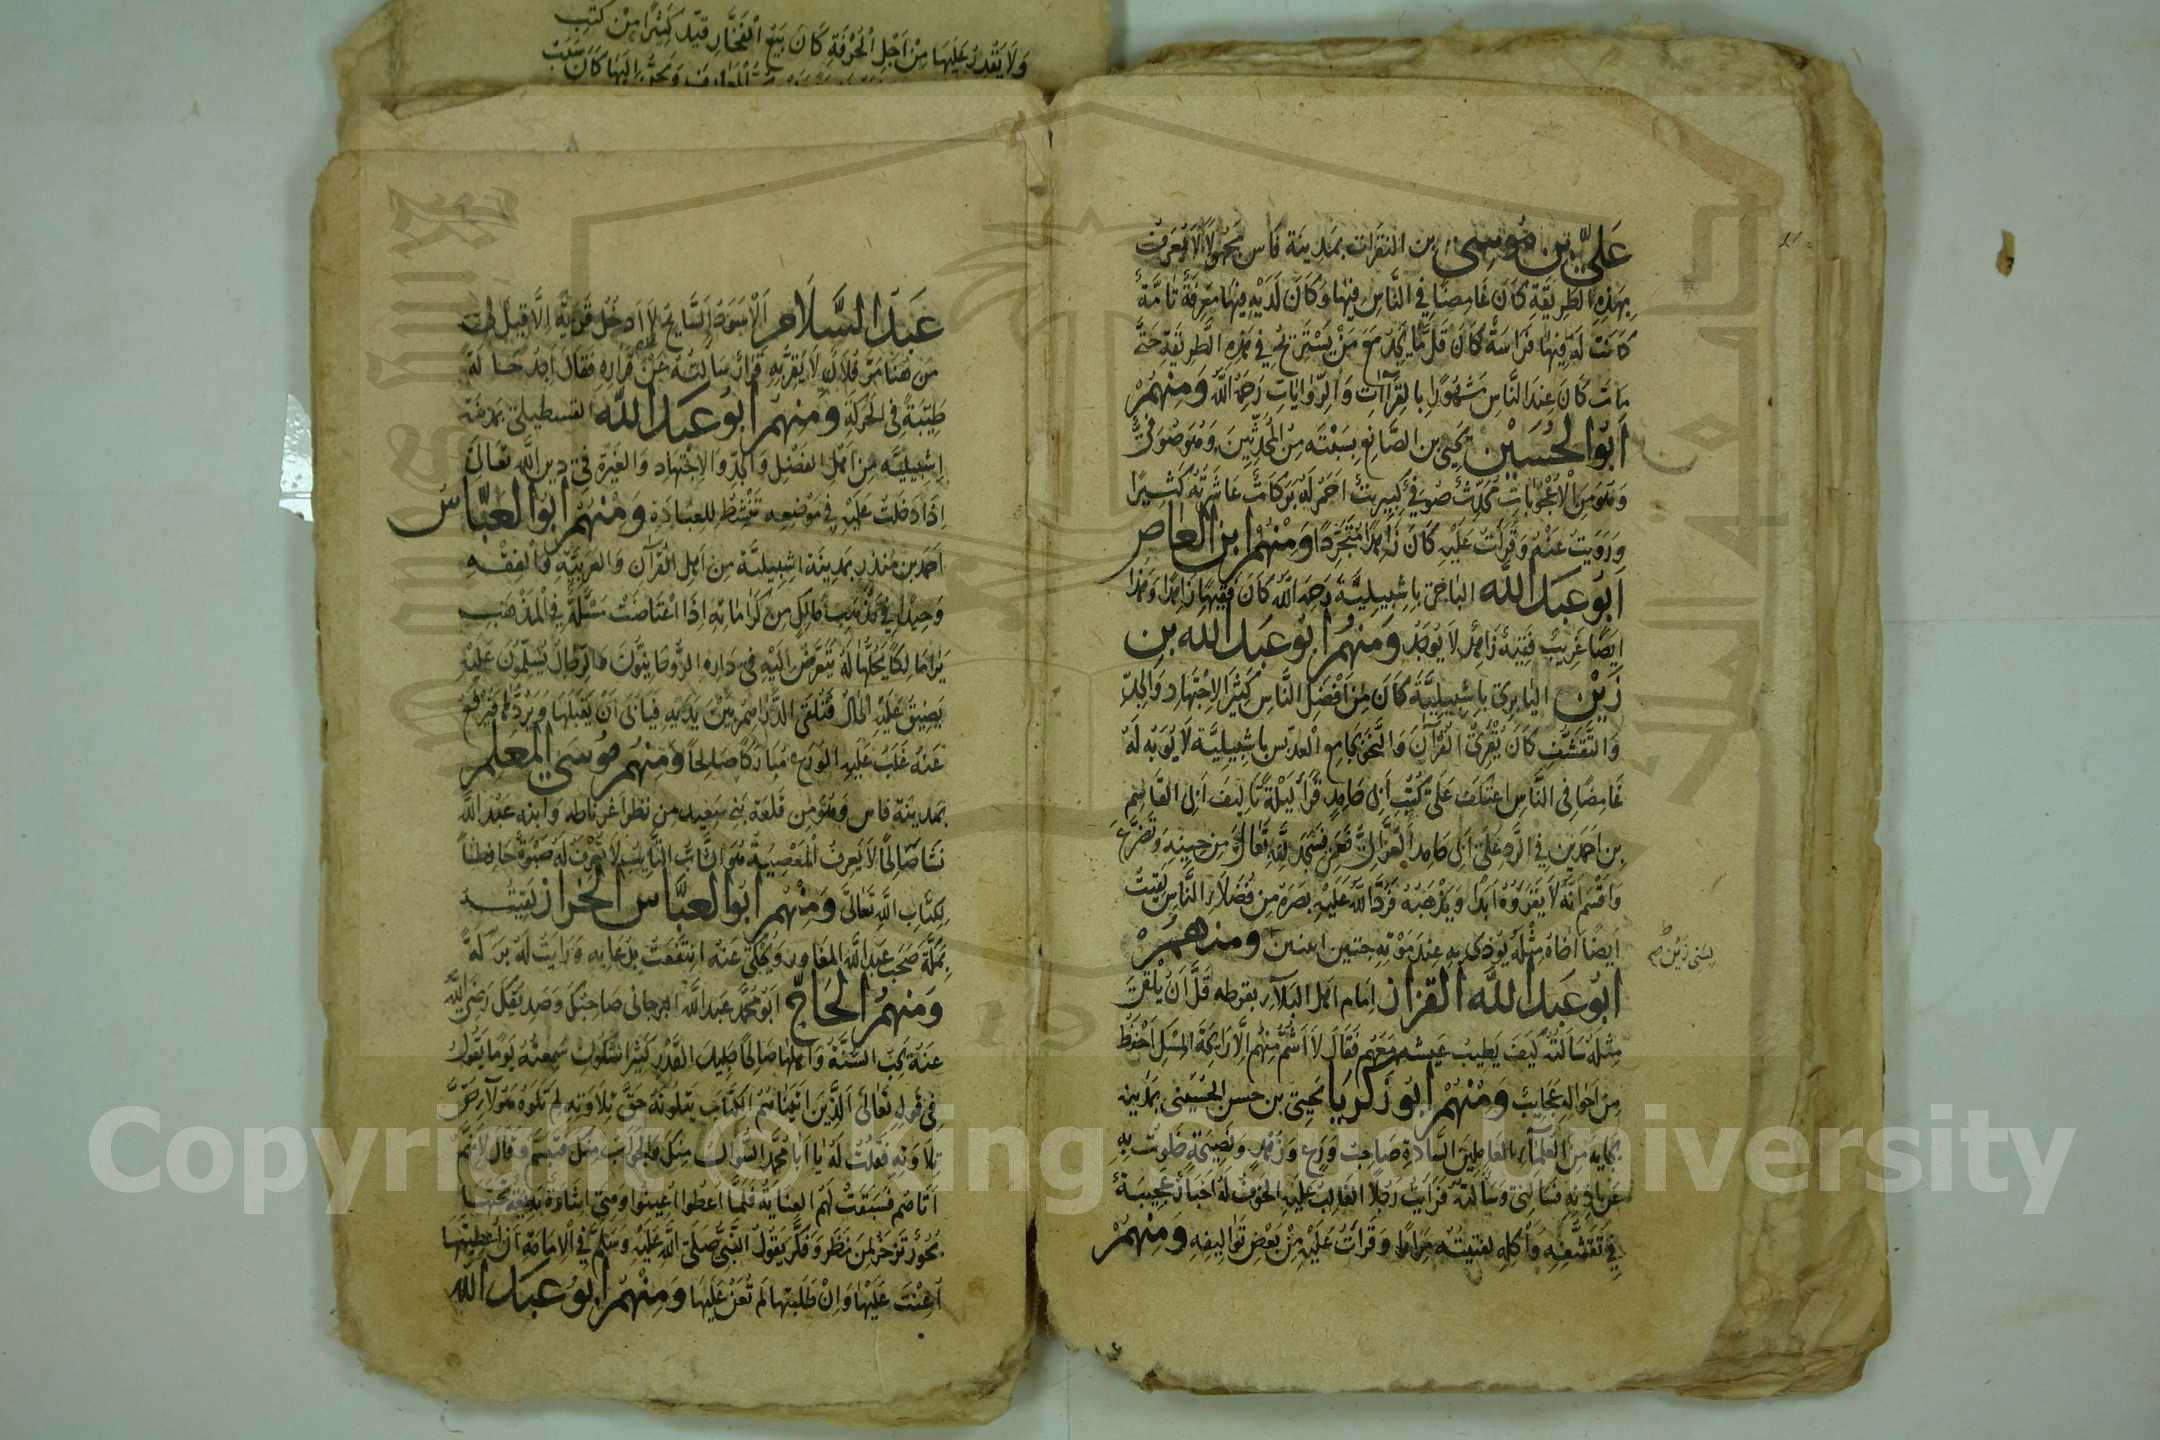 وَلَا يَقْدِرُ عَلَيْهَا مِنْ اَجْلِ الْحُرْفَةِ كَانَ يَبِيعُ الْفَخَّارَ قَيَّدَ كَثِيْرًا مِنْ كُتُبِ
عَلِيِّ بْنِ مُوسى بن النقرات بمدينة فاس مجهولًا لَا يُعرَفُ
بِهٰذِهِ الطَّرِيقَةِ كَانَ غَامِضًا فِي النَّاسِ فِيْهَا وَكَانَ لَدَيْهِ فِيْهَا مَعْرِفَةٌ تَامَّةٌ
كَانَتْ لَهُ فِيْهَا فَرَاسَةٌ كَانَ قَلَّ مَا يَجِدُ مَعَ مَنْ يَسْتَرِيْحُ فِي هٰذِهِ الطَّرِيقَةِ حَتّٰى
مَاتَ كَانَ عِنْدَ النَّاسِ مَشْهُوْرًا بِالْقِرَآٰتِ وَالرِّوَايَاتِ رَحِمَهُ اللّٰهُ وَمِنْهُمْ
اَبُو الْحُسَيْنِ يَحْيَى بن الصَّائِغِ بِسَبْتَه مِنَ الْمُحَدِّثِيْنَ وَهُوَ صُوفِيٌّ
وَهُوَ مِنَ الْاُعْجُوبَاتِ مُحَدِّثٌ صُوفِيٌّ كِبْرِيْتٌ اَحْمَرُ لَهُ بَرَكَاتٌ عَاشَرْتُهُ كَثِيْرًا
وَرَوَيْتُ عَنْهُ وَقَرَأْتُ عَلَيْهِ كَانَ زَاهِدًا مُتَجَرِّدًا وَمِنْهُمْ ابن العاص
اَبُو عَبْدِ اللّٰه الباجي بِاِشْبِيلِيَّةَ رَحِمَهُ اللّٰهُ كَانَ فَقِيْهًا زَاهِدًا وَهٰذَا
اَيْضًا غَرِيْبٌ فَقِيْهٌ زَاهِدٌ لَا يُوْجَدُ وَمِنْهُمْ اَبُو عَبْدِ اللّٰه بن
زَيْنٍ اليابري بِاِشْبِيلِيَّةَ كَانَ مِنْ اَفْضَلِ النَّاسِ كَثِيْرَ الْاِجْتِهَادِ وَالْجِدِّ
وَالتَّقَشُّفِ كَانَ يُقْرِئُ الْقُرْآنَ وَالنَّحْوَ بِجَامِعِ الْعَدَبَّسِ بِاِشْبِيلِيَّة لَا يُوبَهُ لَهُ
غَامِضًا فِي النَّاسِ اعْتَكَفَ عَلَى كُتُبِ اَبِي حَامِدٍ قَرَأَ لَيْلَةً تَاْلِيْفَ اَبِي الْقَاسِمِ
بن احْمَدِيْنَ فِي الرَّدِّ عَلَى اَبِي حَامِدٍ الْغَزَّالِيِّ فَعَمِيَ فَسَجَدَ لِلّٰهِ تَعَالٰى مِنْ حِيْنِهِ وَتَضَرَّعَ
وَاَقْسَمَ اَنَّهُ لَا يَقْرَؤُهُ اَبَدًا وَيُذْهِبُهُ فَرَدَّ اللّٰهُ عَلَيْهِ بَصَرَهُ مِنْ فُضَلَاءِ النَّاسِ لَقِيْتُ
اَيْضًا اَخَاهُ مِثْلَهُ نُودِيَ بِهِ عِنْدَ مَوْتِهِ جنتين اثنين وَمِنْهُمْ
اَبُو عَبْدِ اللّٰه القزاز اِمَام اهل البلاء بقرطبه قَلَّ اَنْ يُلْقٰى
مِثْلُهُ سَاَلْتُهُ كَيْفَ يَطِيبُ عَيْشه مَعَهُمْ فَقَالَ لَا اَشُمُّ مِنْهُمْ اِلَّا رَائِحَةَ الْمِسْكِ
مِنْ اَحْوَالِهِ عَجَايِبَ وَمِنْهُمْ اَبُو زَكَرِيَّا يَحْيَى بن حسن الحسيني بِمَدِينة
بجاية مِنَ الْعُلَمَآءِ الْعَامِلِيْنَ السَّادَةِ صَاحِبُ وَرَعٍ وَزُهْدٍ وَنَصِيْحَةٍ خَلَوْتُ بِهِ
وَسَاَلْتُهُ فَرَاَيْتُ رَجُلًا الْغَالِبُ عَلَيْهِ الْخَوْفُ لَهُ اَخْبَارٌ عَجِيبَةٌ
فِي تَقَشُّفِهِ وَاَكْلِهِ لَقِيْتُهُ مِرَارًا وَقَرَأْتُ عَلَيْهِ مِنْ بَعْضِ تَوَالِيفِهِ وَمِنْهُمْ
عَبْدُ السَّلَامِ اَلْاَسْوَدُ السَّايِحُ لَا اَدْخُلُ قَرْيَةً اِلَّا قِيْلَ لِي
مِنْ هُنَا مَرَّ فُلَانٌ لَا يَقِرُّ بِهِ قَرَارٌ سَاَلْتُهُ عَنْ قَرَارِهِ فَقَالَ اَجِدُ حَالَةً
طَيِّبَةً فِي الْحَرَكَةِ وَمِنْهُمْ اَبُو عَبْدِ اللّٰه القسطيلي بمدينة
اِشْبِيلِيَّه مِن اَهْلِ الفَضْلِ وَالْجِدِّ وَالْاِجْتِهَادِ وَالغَيْرَةِ فِي دِينِ اللّٰهِ تَعَالٰى
اِذَا دَخَلْتَ عَلَيْهِ فِي مَوْضِعِهِ تَنْشَطُ لِلْعِبَادَةِ وَمِنْهُمْ اَبُو الْعَبَّاسِ
اَحْمَدُ بن مُنْذِرٍ بِمَدِينَةِ اِشْبِيلِيَّة مِن اَهْلِ الْقُرْآنِ وَالعَرَبِيَّةِ وَالْفِقْهِ
وَحِيْدًا فِي مَذْهَبِ مَالِكٍ مِن كَرَامَاتِهِ اِذَا اعْتَاصَتْ مَسْئَلَةٌ فِي الْمَذْهَبِ
يَرٰى مَالِكًا يَحُلُّهَا لَهُ يَتَعَرَّضُ اِلَيْهِ فِي دَارِهِ الرُّوحَانِيُّونَ وَالرِّجَالُ يُسَلِّمُوْنَ عَلَيْهِ
يَضِيْقُ عَلَيْهِ الْحَالُ فَتُلْقَى الدَّرَاهِمُ بَيْنَ يَدَيْهِ فَيَاْبٰى اَنْ يَقْبَلَهَا وَيَرُدُّهَا فَتَرْفَعُ
عَنْهُ غَلَبَ عَلَيْهِ الْوَرَعُ مُبَارَكًا صَالِحًا وَمِنْهُمْ مُوسَى الْمُعَلِّمُ
بِمَدِينَة فاس وَهُوَ مِن قَلعَة بَنِي سَعِيد مِن نظر اغرناطه وَابْنه عَبْدُ اللّٰه
نَشَا صَالِحًا لَا يَعْرِفُ الْمَعْصِيَةَ هُوَ الشَّابُّ التَّايِبُ لَا تُعْرَفُ لَهُ صَبْوَةٌ حَافِظًا
لِكِتَابِ اللّٰهِ تَعَالٰى وَمِنْهُمْ اَبُو الْعَبَّاسِ الْخَرَّاز لَقِيْتُهُ
بِمَكَّةَ صَحِبَ عَبْدَ اللّٰه المغاور وَيَحْكِي عَنْهُ انْتَفَعْتُ بِدُعَايِهِ وَرَاَيْتُ لَهُ بَرَكَةً
وَمِنْهُمُ الْحَاجُّ اَبُو مُحَمَّدٍ عَبْدُ اللّٰه البرجاني صَاحِبُكَ وَصَدِيقُكَ رَضِيَ اللّٰهُ
عَنْهُ يُحِبُّ السُّنَّةَ وَاَهْلَهَا صَالِحًا جَلِيلَ الْقَدْرِ كَثِيْرَ السُّكُوتِ سَمِعْتُهُ يَوْمًا يَقُولُ
فِي قَوْلِهِ تَعَالٰى اَلَّذِيْنَ اٰتَيْنَاهُمُ الْكِتَابَ يَتْلُونَهُ حَقَّ تِلَاوَتِهِ لِمَ تَلَوْهُ هٰؤُلَآءِ حَقَّ
تِلَاوَتِهِ فَقُلْتُ لَهُ يَا اَبَا مُحَمَّدٍ السُّؤَالُ مِنْكَ وَالْجَوَابُ مِنْكَ فَتَبَسَّمَ وَقَالَ لِاَنَّهُ
اٰتَاهُمْ فَسَبَقَتْ لَهُمُ الْعِنَايَةُ فَلَمَّا اُعْطُوا اُعِينُوا وَهِيَ اِشَارَةٌ بَدِيعَةٌ تَحْتَهَا
بُحُورٌ تَزْخَرُ لِمَنْ نَظَرَ وَفَكَّرَ يَقُولُ النَّبِيُّ صَلَّى اللّٰهُ عَلَيْهِ وَسَلَّمَ فِي الْاِمَامَةِ اِنْ اُعْطِيتَهَا
اُعِنْتَ عَلَيْهَا وَاِنْ طَلَبْتَهَا لَمْ تُعَنْ عَلَيْهَا وَمِنْهُمْ اَبُو عَبْدِ اللّٰه
Copyright © King Saud University